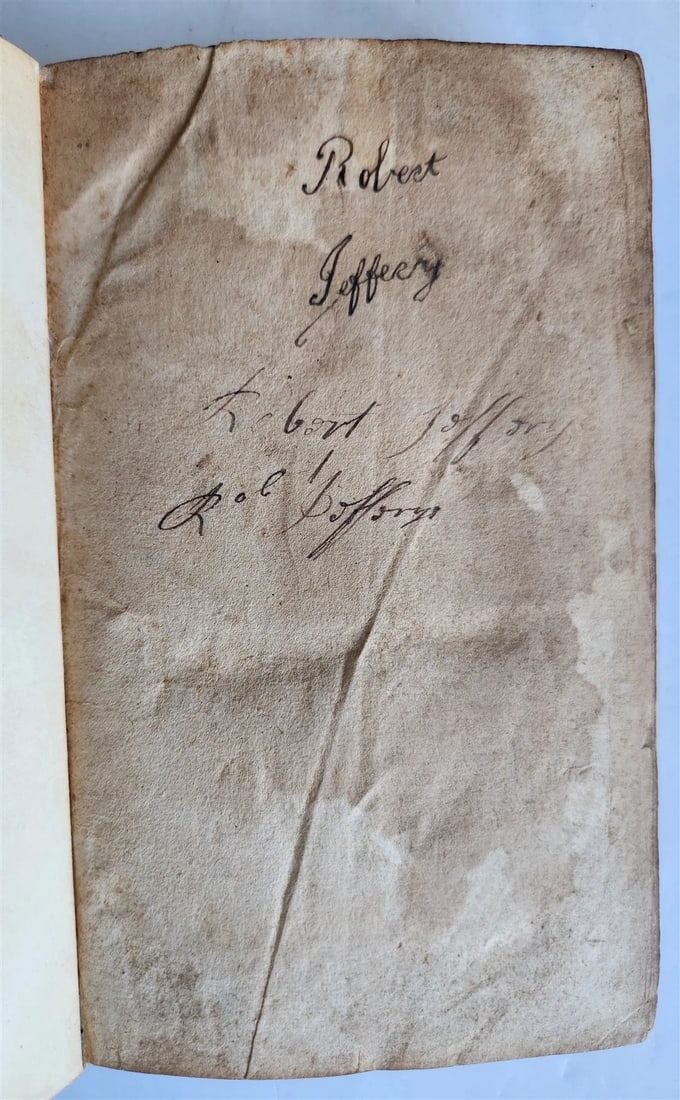 Robert
Jeffery
Robert Jeffery
Rob Jefferys